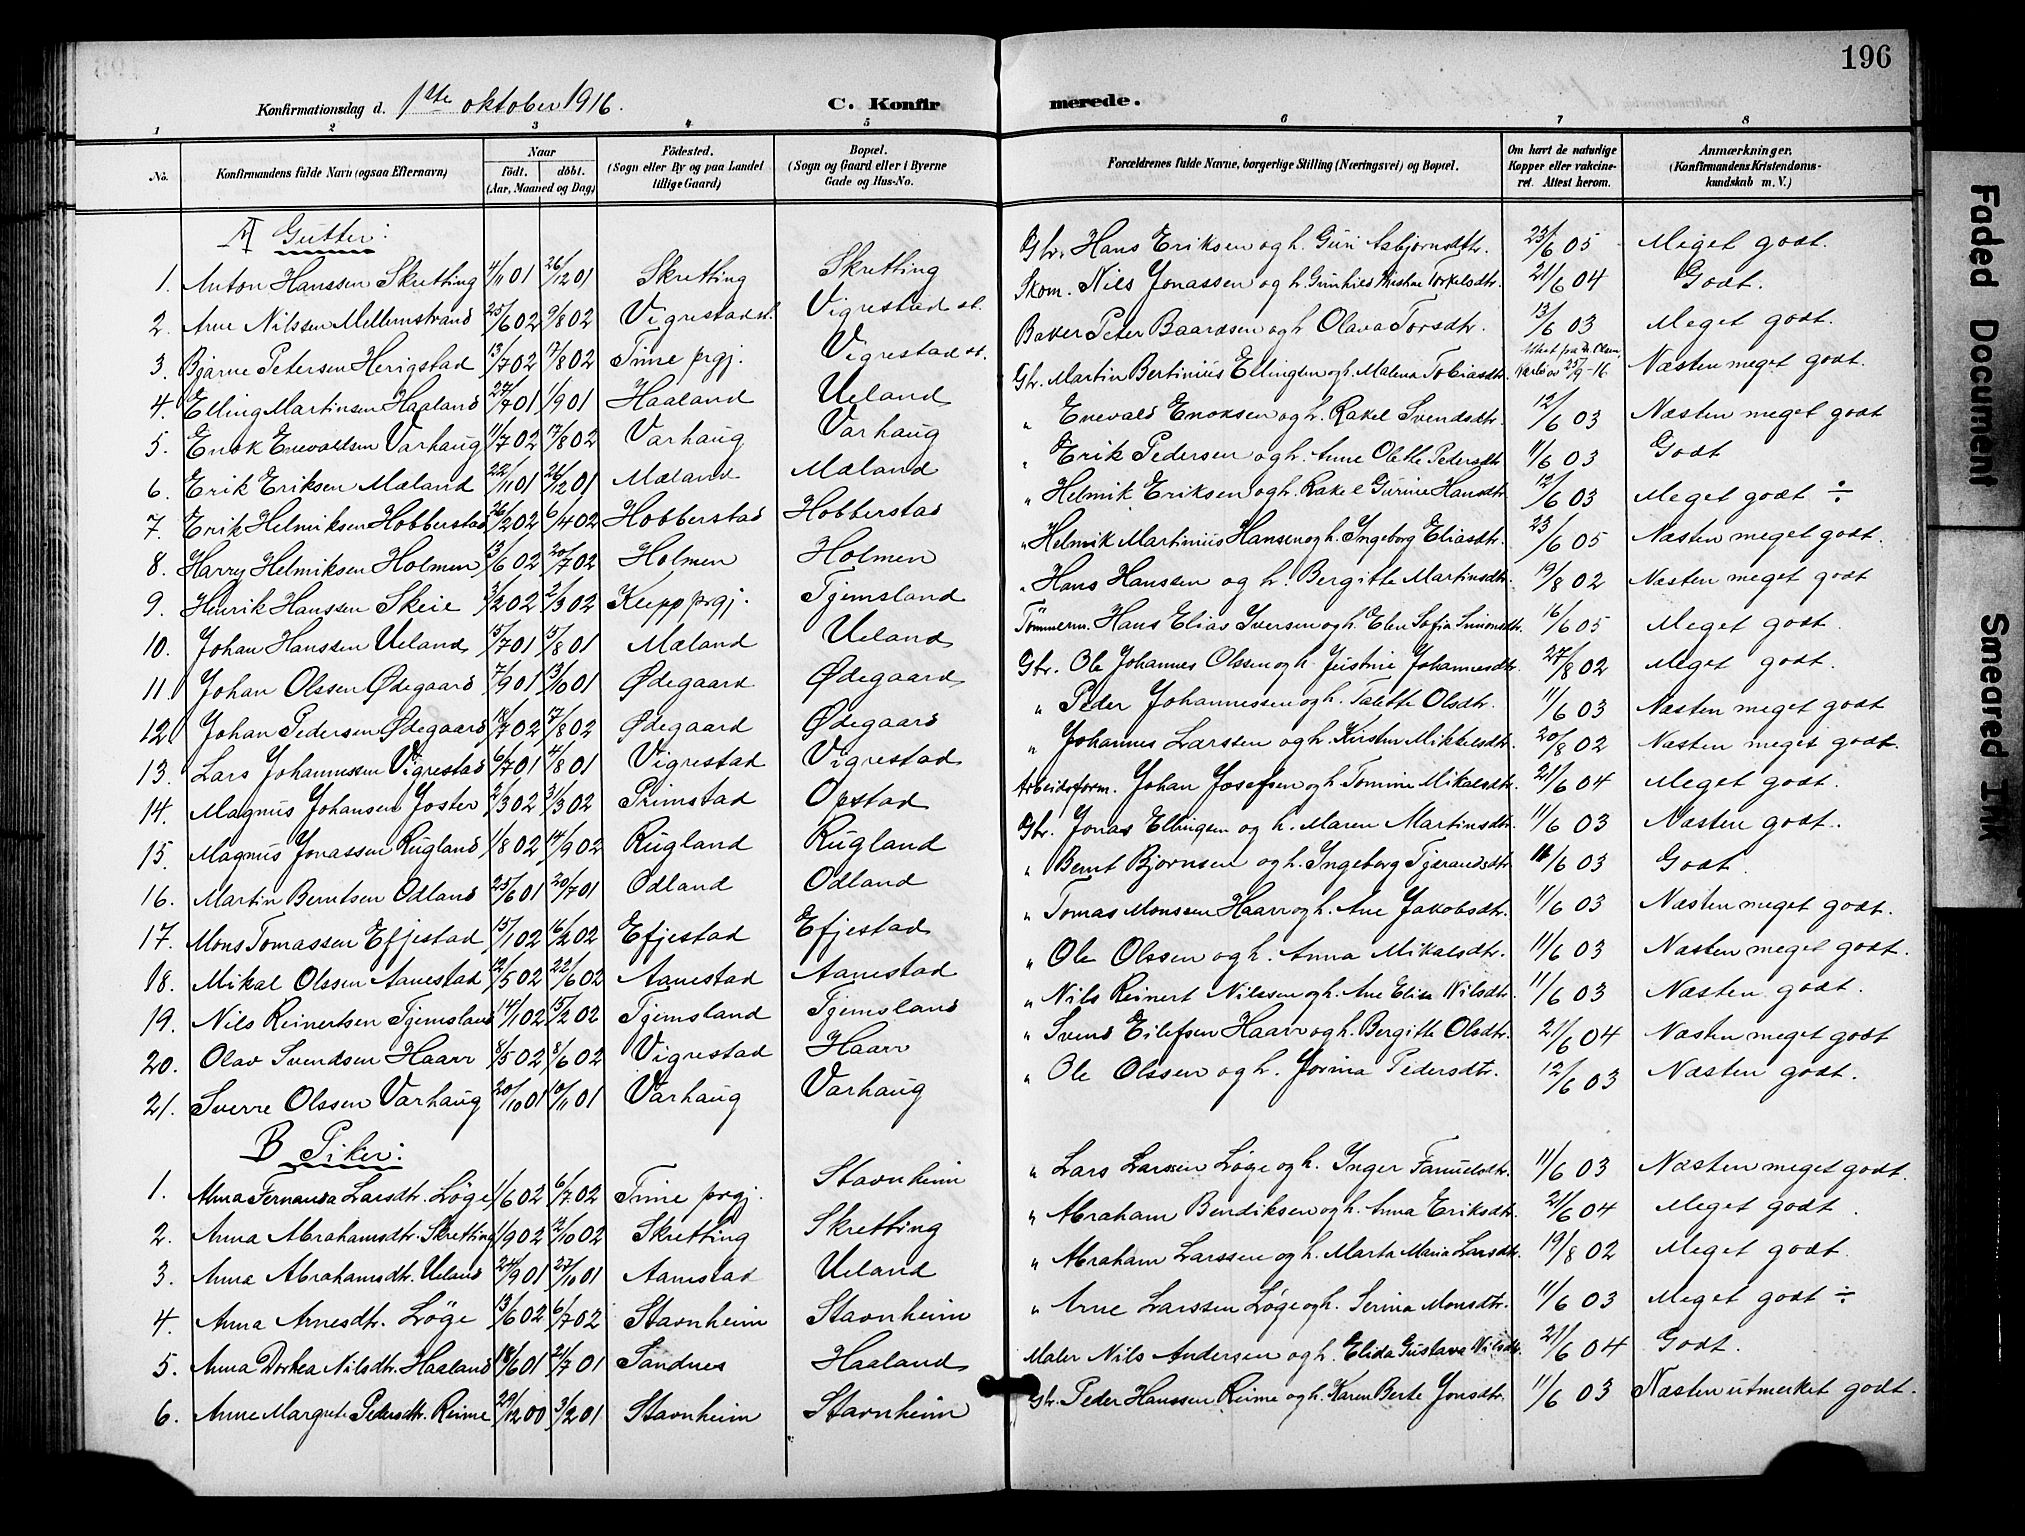 196
Konfirmationsdag d. 1ste oktober 1916. C. Konfirmerede.
1 2 3 4 5 6 7 8
No. Konfirmandens fulde Navn (ogsaa Efternavn) Naar født. døbt. (Aar, Maaned og Dag) Fødested. (Sogn eller By og paa Landet tillige Gaard) Bopæl. (Sogn og Gaard eller i Byerne Gade og Hus-No. Forældrenes fulde Navne, borgerlige Stilling (Næringsvei) og Bopæl. Om havt de naturlige Kopper eller vakcineret. Attest herom. Anmærkninger. (Konfirmandens Kristendomskundskab m. V.)
A Gutter:
1. Anton Hanssen Skretting 4/11 01 26/12 01 Skretting Skretting Gbr. Hans Eriksen og h. Guri Asbjørnsdtr. 23/6 05 Meget godt.
2. Arne Nilssen Mellemstrand 25/6 02 9/8 02 Vigrestad st. Vigrestad st. Skom. Nils Jonassen og h. Gunhild Kristine Torkelsdtr. 21/6 04 Godt.
3. Bjarne Petersen Herigstad 13/7 02 17/8 02 Time prgj. Vigrestad st. Baker Peter Baardsen og h. Olava Torsdtr. 13/6 03 Meget godt.
4. Elling Martinsen Haaland 27/7 01 1/9 01 Haaland Ueland Gbr. Martin Bertinius Ellingsen og h. Malena Tobiasdtr. Attest fra Dr. Olsen, 25/9-16 Næsten meget godt.
5. Enok Enevaldsen Varhaug 11/7 02 17/8 02 Varhaug Varhaug " Enevald Enoksen og h. Rakel Svendsdtr. 12/6 03 Næsten meget godt
6. Erik Eriksen Mæland 22/11 01 26/12 01 Mæland Mæland " Erik Pedersen og h. Anne Olette Pedersdtr 11/6 03 Godt
7. Erik Helmiksen Hobberstad 26/2 02 6/4 02 Hobberstad Hobberstad " Helmik Eriksen og h. Rakel Gurine Hansdtr 12/6 03 Meget godt ÷
8. Harry Helmiksen Holmen 13/6 02 20/7 02 Holmen Holmen " Helmik Martinius Hansen og h. Ingeborg Eliasdtr. 23/6 05 Næsten meget godt.
9. Henrik Hanssen Skeie 3/2 02 2/3 02 Klepp prgj. Tjemsland " Hans Hanssen og h. Bergitte Martinsdtr. 19/8 02 Næsten meget godt
10. Johan Hanssen Ueland 15/7 01 15/8 01 Mæland Ueland Tømmerm. Hans Elias Iversen og h. Elen Sofia Simonsdtr. 16/6 05 Meget godt.
11. Johan Olssen Ødegaard 7/9 01 13/10 01 Ødegaard Ødegaard Gbr. Ole Johannes Olssen og h. Justine Johannesdtr. 27/8 02 Meget godt.
12. Johan Pedersen Ødegaard 18/7 02 17/8 02 Ødegaard Ødegaard " Peder Johannessen og h. Talette Olsdtr. 11/6 03 Næsten meget godt
13. Lars Johannessen Vigrestad 6/7 01 4/8 01 Vigrestad Vigrestad " Johannes Larssen og h. Kirsten Mikkelsdtr. 20/8 02 Næsten meget godt.
14. Magnus Johansen Joster 2/3 02 31/3 02 Primstad Opstad Arbeidsform. Johan Josefsen og h. Tomine Mikalsdtr. 21/6 04 Meget godt.
15. Magnus Jonassen Rugland 1/8 02 14/9 02 Rugland Rugland Gbr. Jonas Ellingsen og h. Maren Martinsdtr. 11/6 03 Næsten godt.
16. Martin Berntsen Odland 25/6 01 20/7 01 Odland Odland " Bernt Bjørnsen og h. Ingeborg Tjærandsdtr. 11/6 03 Godt.
17. Mons Tomassen Efjestad 15/1 02 16/2 02 Efjestad Efjestad " Tomas Monsen Haarr og h. Ane Jakobsdtr. 11/6 03 Næsten meget godt.
18. Mikal Olssen Aanestad 12/5 02 22/6 02 Aanestad Aanestad " Ole Olssen og h. Anna Mikalsdtr. 11/6 03 Næsten meget godt.
19. Nils Reinertsen Tjemsland 14/1 02 15/2 02 Tjemsland Tjemsland " Nils Reinert Nilssen og h. Ane Elisa Nilsdtr. 11/6 03 Næsten godt.
20. Olav Svendsen Haarr 8/5 02 8/6 02 Vigrestad Haarr " Svend Eilefsen Haarr og h. Bergitte Olsdtr. 21/6 04 Næsten meget godt
21. Sverre Olssen Varhaug 20/10 01 10/11 01 Varhaug Varhaug " Ole Olssen og h. Jorina Pedersdtr. 12/6 03 Næsten godt.
B Piker:
1. Alma Fernanda Larsdtr. Løge 1/6 02 6/7 02 Time prgj. Stavnheim " Lars Larssen Løge og h. Inger Tanuelsdtr. 11/6 03 Næsten meget godt.
2. Anna Abrahamsdtr. Skretting 11/9 02 12/10 02 Skretting Skretting " Abraham Bendiksen og h. Anna Eriksdtr. 21/6 04 Meget godt.
3. Anna Abrahamsdtr. Ueland 24/9 01 27/10 01 Aanestad Ueland " Abraham Larssen og h. Marta Maria Larsdtr. 19/8 02 Meget godt.
4. Anna Arnesdtr. Løge 13/6 02 6/7 02 Stavnheim Stavnheim " Arne Larssen Løge og h. Serina Monsdtr. 11/6 03 Meget godt ÷
5. Anna Dorthea Nilsdtr. Haaland 18/6 01 21/7 01 Sandnes Haaland Maler Nils Andersen og h. Elida Gustava Nilsdtr. 21/6 04 Godt.
6. Anne Margrete Pedersdtr. Reime 29/12 00 3/2 01 Stavnheim Stavnheim Gbr. Peder Hanssen Reime og h. Karen Berte Jonsdtr. 11/6 03 Næsten utmerket godt.
Faded Document
Smeared Ink